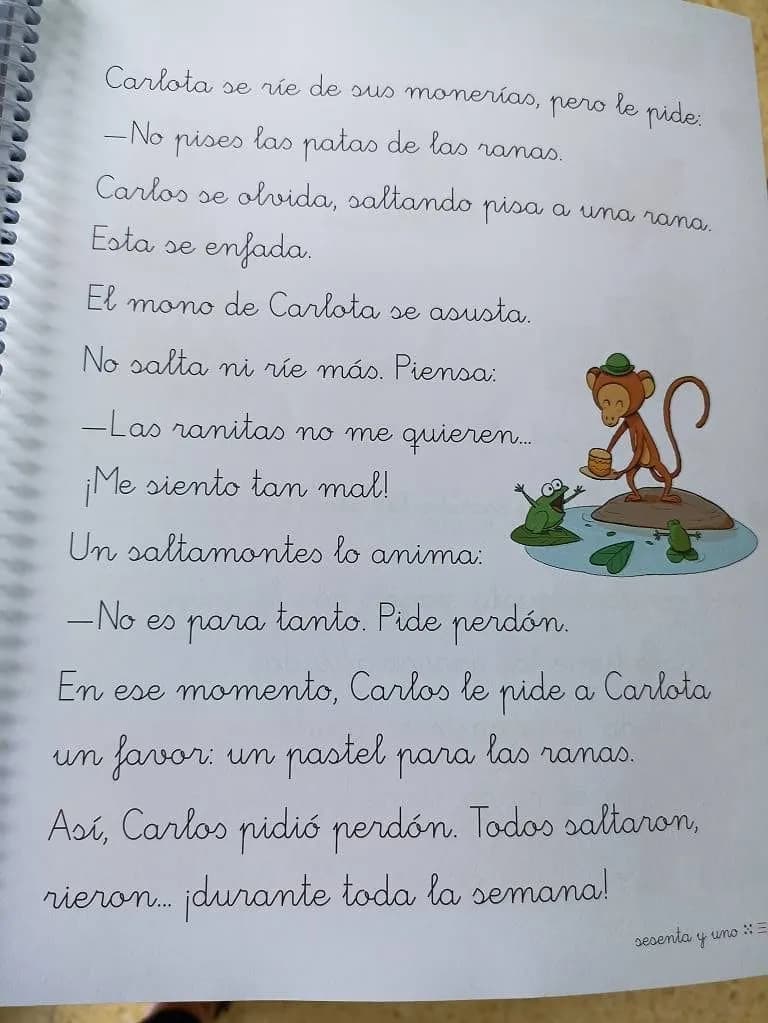 Carlota se ríe de sus monerías, pero le pide:
—No pises las patas de las ranas.
Carlos se olvida, saltando pisa a una rana.
Esta se enfada.
El mono de Carlota se asusta.
No salta ni ríe más. Piensa:
—Las ranitas no me quieren...
¡Me siento tan mal!
Un saltamontes lo anima:
—No es para tanto. Pide perdón.
En ese momento, Carlos le pide a Carlota
un favor: un pastel para las ranas.
Así, Carlos pidió perdón. Todos saltaron,
rieron... ¡durante toda la semana!
sesenta y uno